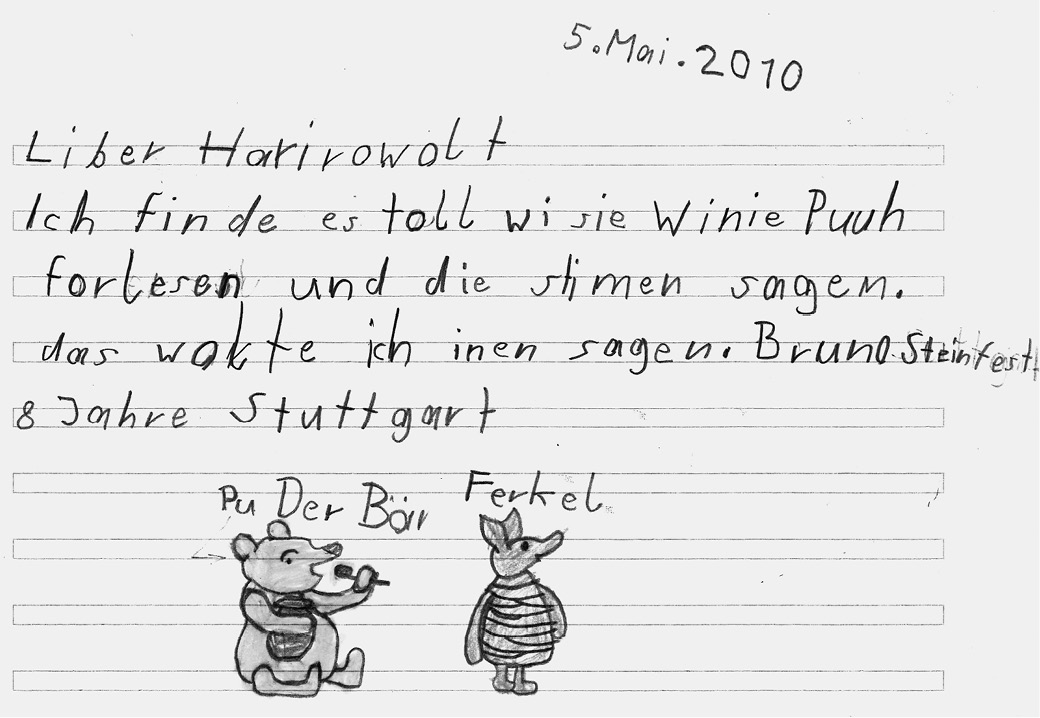 5. Mai. 2010
Liber Harirowolt
Ich finde es toll wi sie Winie Puuh
forlesen und die stimen sagen.
das wolte ich inen sagen. Bruno Steinfest
8 Jahre Stuttgart
Pu Der Bär Ferkel